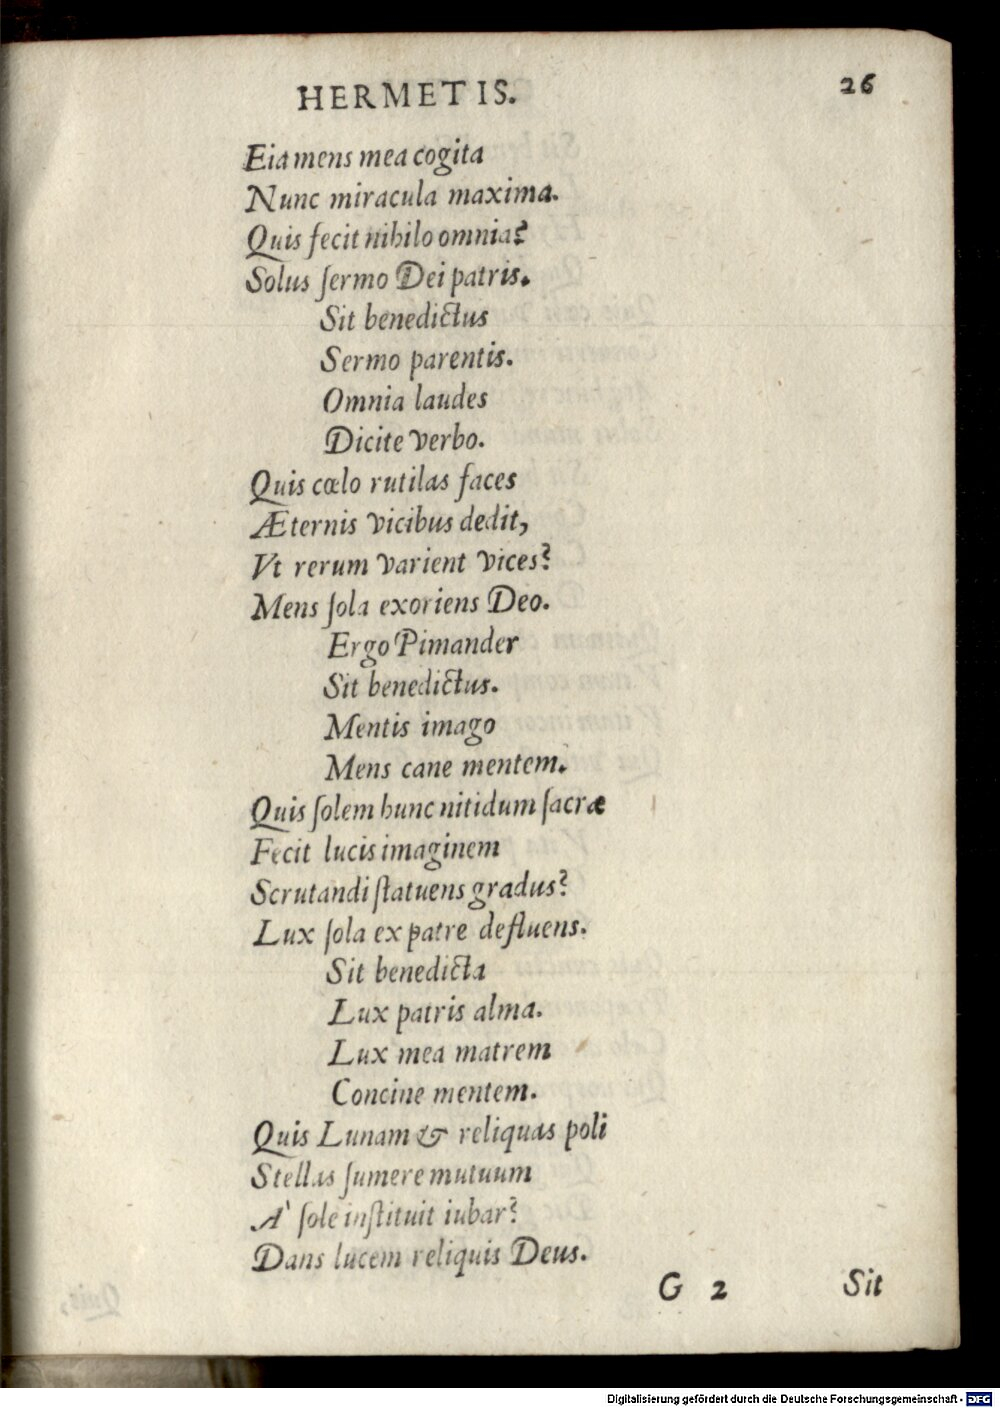 HERMETIS. 26
Eia mens mea cogita
Nunc miracula maxima.
Quis fecit nihilo omnia?
Solus ſermo Dei patris.
Sit benedictus
Sermo parentis.
Omnia laudes
Dicite verbo.
Quis cœlo rutilas faces
Æternis vicibus dedit,
Vt rerum varient vices?
Mens ſola exoriens Deo.
Ergo Pimander
Sit benedictus.
Mentis imago
Mens cane mentem.
Quis ſolem hunc nitidum ſacræ
Fecit lucis imaginem
Scrutandi ſtatuens gradus?
Lux ſola ex patre defluens.
Sit benedicta
Lux patris alma.
Lux mea matrem
Concine mentem.
Quis Lunam & reliquas poli
Stellas ſumere mutuum
A' ſole inſtituit iubar?
Dans lucem reliquis Deus.
G 2 Sit
Digitalisierung gefördert durch die Deutsche Forschungsgemeinschaft - DFG